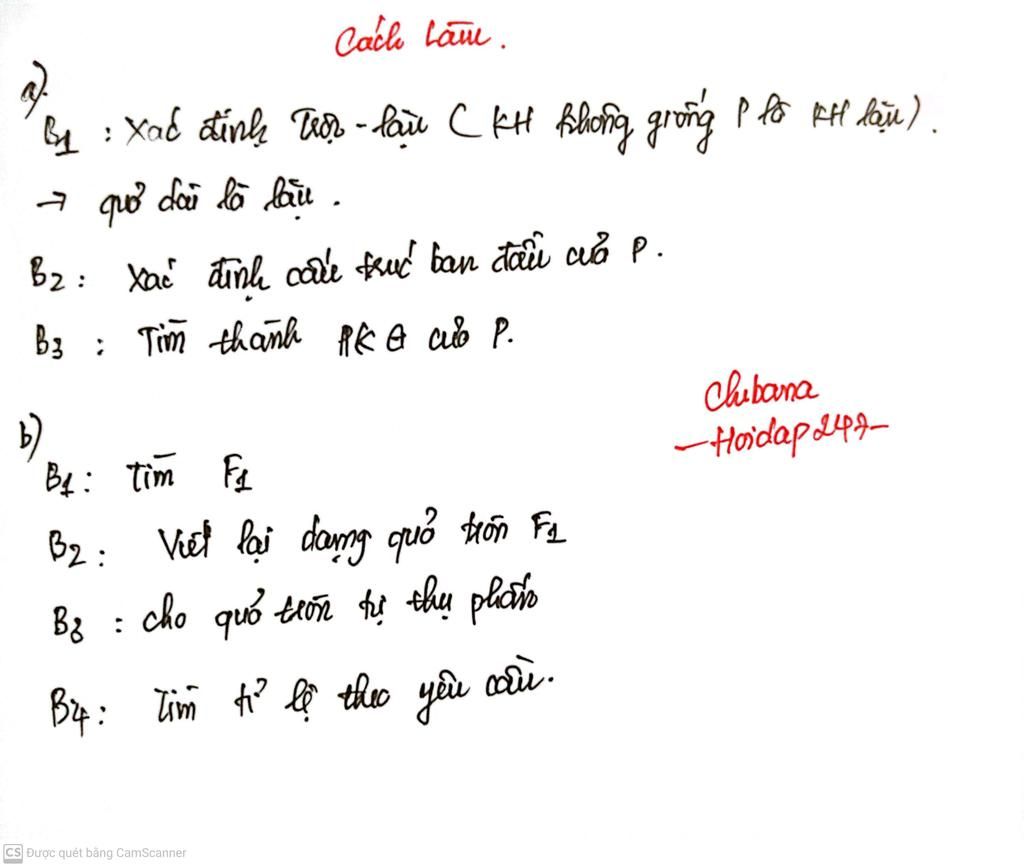 Cách làm.
a).
B1 : Xác định Trội - lặn ( KH không giống P là KH lặn ).
→ quả dài là lặn.
B2 : Xác định cấu trúc ban đầu của P.
B3 : Tìm thành PK G của P.
Chibana
- Hoidap247 -
b)
B1 : tìm F1
B2 : Viết lại dạng quả tròn F1
B3 : cho quả tròn tự thụ phấn
B4 : Tìm tỉ lệ theo yêu cầu.
CS Được quét bằng CamScanner